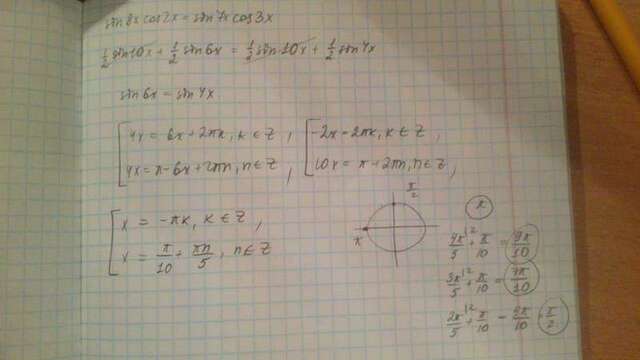 sin8xcos2x = sin7xcos3x
1/2 sin10x + 1/2 sin6x = 1/2 sin10x + 1/2 sin4x
sin6x = sin4x
[ 4x = 6x + 2πk, k ∈ Z, [ -2x = 2πk, k ∈ Z,
4x = π - 6x + 2πn, n ∈ Z, 10x = π + 2πn, n ∈ Z,
[ x = -πk, k ∈ Z,
x = π/10 + πn/5, n ∈ Z
π/2
π
π
4π/5 |2 + π/10 = 9π/10
3π/5 |2 + π/10 = 7π/10
2π/5 |2 + π/10 = 5π/10 = π/2